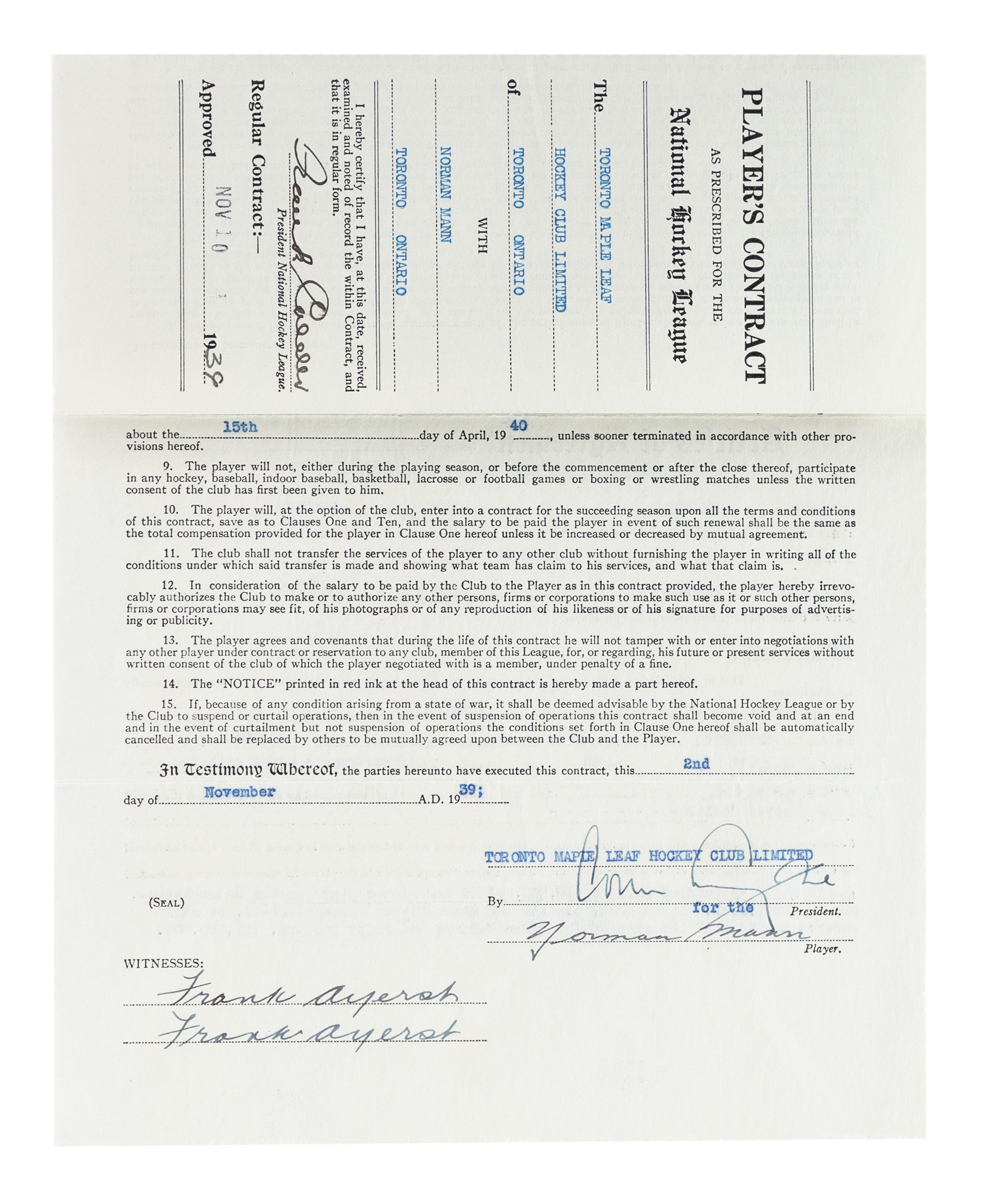 PLAYER'S CONTRACT
AS PRESCRIBED FOR THE
National Hockey League
The TORONTO MAPLE LEAF
HOCKEY CLUB LIMITED
of TORONTO ONTARIO
WITH
NORMAN MANN
TORONTO ONTARIO
I hereby certify that I have, at this date, received,
examined and noted of record the within Contract, and
that it is in regular form.
Frank Calder
President National Hockey League.
Regular Contract:—
Approved NOV 10 1938
about the 15th day of April, 19 40, unless sooner terminated in accordance with other pro-
visions hereof.
9. The player will not, either during the playing season, or before the commencement or after the close thereof, participate
in any hockey, baseball, indoor baseball, basketball, lacrosse or football games or boxing or wrestling matches unless the written
consent of the club has first been given to him.
10. The player will, at the option of the club, enter into a contract for the succeeding season upon all the terms and conditions
of this contract, save as to Clauses One and Ten, and the salary to be paid the player in event of such renewal shall be the same as
the total compensation provided for the player in Clause One hereof unless it be increased or decreased by mutual agreement.
11. The club shall not transfer the services of the player to any other club without furnishing the player in writing all of the
conditions under which said transfer is made and showing what team has claim to his services, and what that claim is.
12. In consideration of the salary to be paid by the Club to the Player as in this contract provided, the player hereby irrevo-
cably authorizes the Club to make or to authorize any other persons, firms or corporations to make such use as it or such other persons,
firms or corporations may see fit, of his photographs or of any reproduction of his likeness or of his signature for purposes of advertis-
ing or publicity.
13. The player agrees and covenants that during the life of this contract he will not tamper with or enter into negotiations with
any other player under contract or reservation to any club, member of this League, for, or regarding, his future or present services without
written consent of the club of which the player negotiated with is a member, under penalty of a fine.
14. The "NOTICE" printed in red ink at the head of this contract is hereby made a part hereof.
15. If, because of any condition arising from a state of war, it shall be deemed advisable by the National Hockey League or by
the Club to suspend or curtail operations, then in the event of suspension of operations this contract shall become void and at an end
and in the event of curtailment but not suspension of operations the conditions set forth in Clause One hereof shall be automatically
cancelled and shall be replaced by others to be mutually agreed upon between the Club and the Player.
In Testimony Whereof, the parties hereunto have executed this contract, this 2nd
day of November A.D. 19 39;
TORONTO MAPLE LEAF HOCKEY CLUB LIMITED
Conn Smythe
(SEAL) By for the President.
Norman Mann
Player.
WITNESSES:
Frank Ayerst
Frank Ayerst